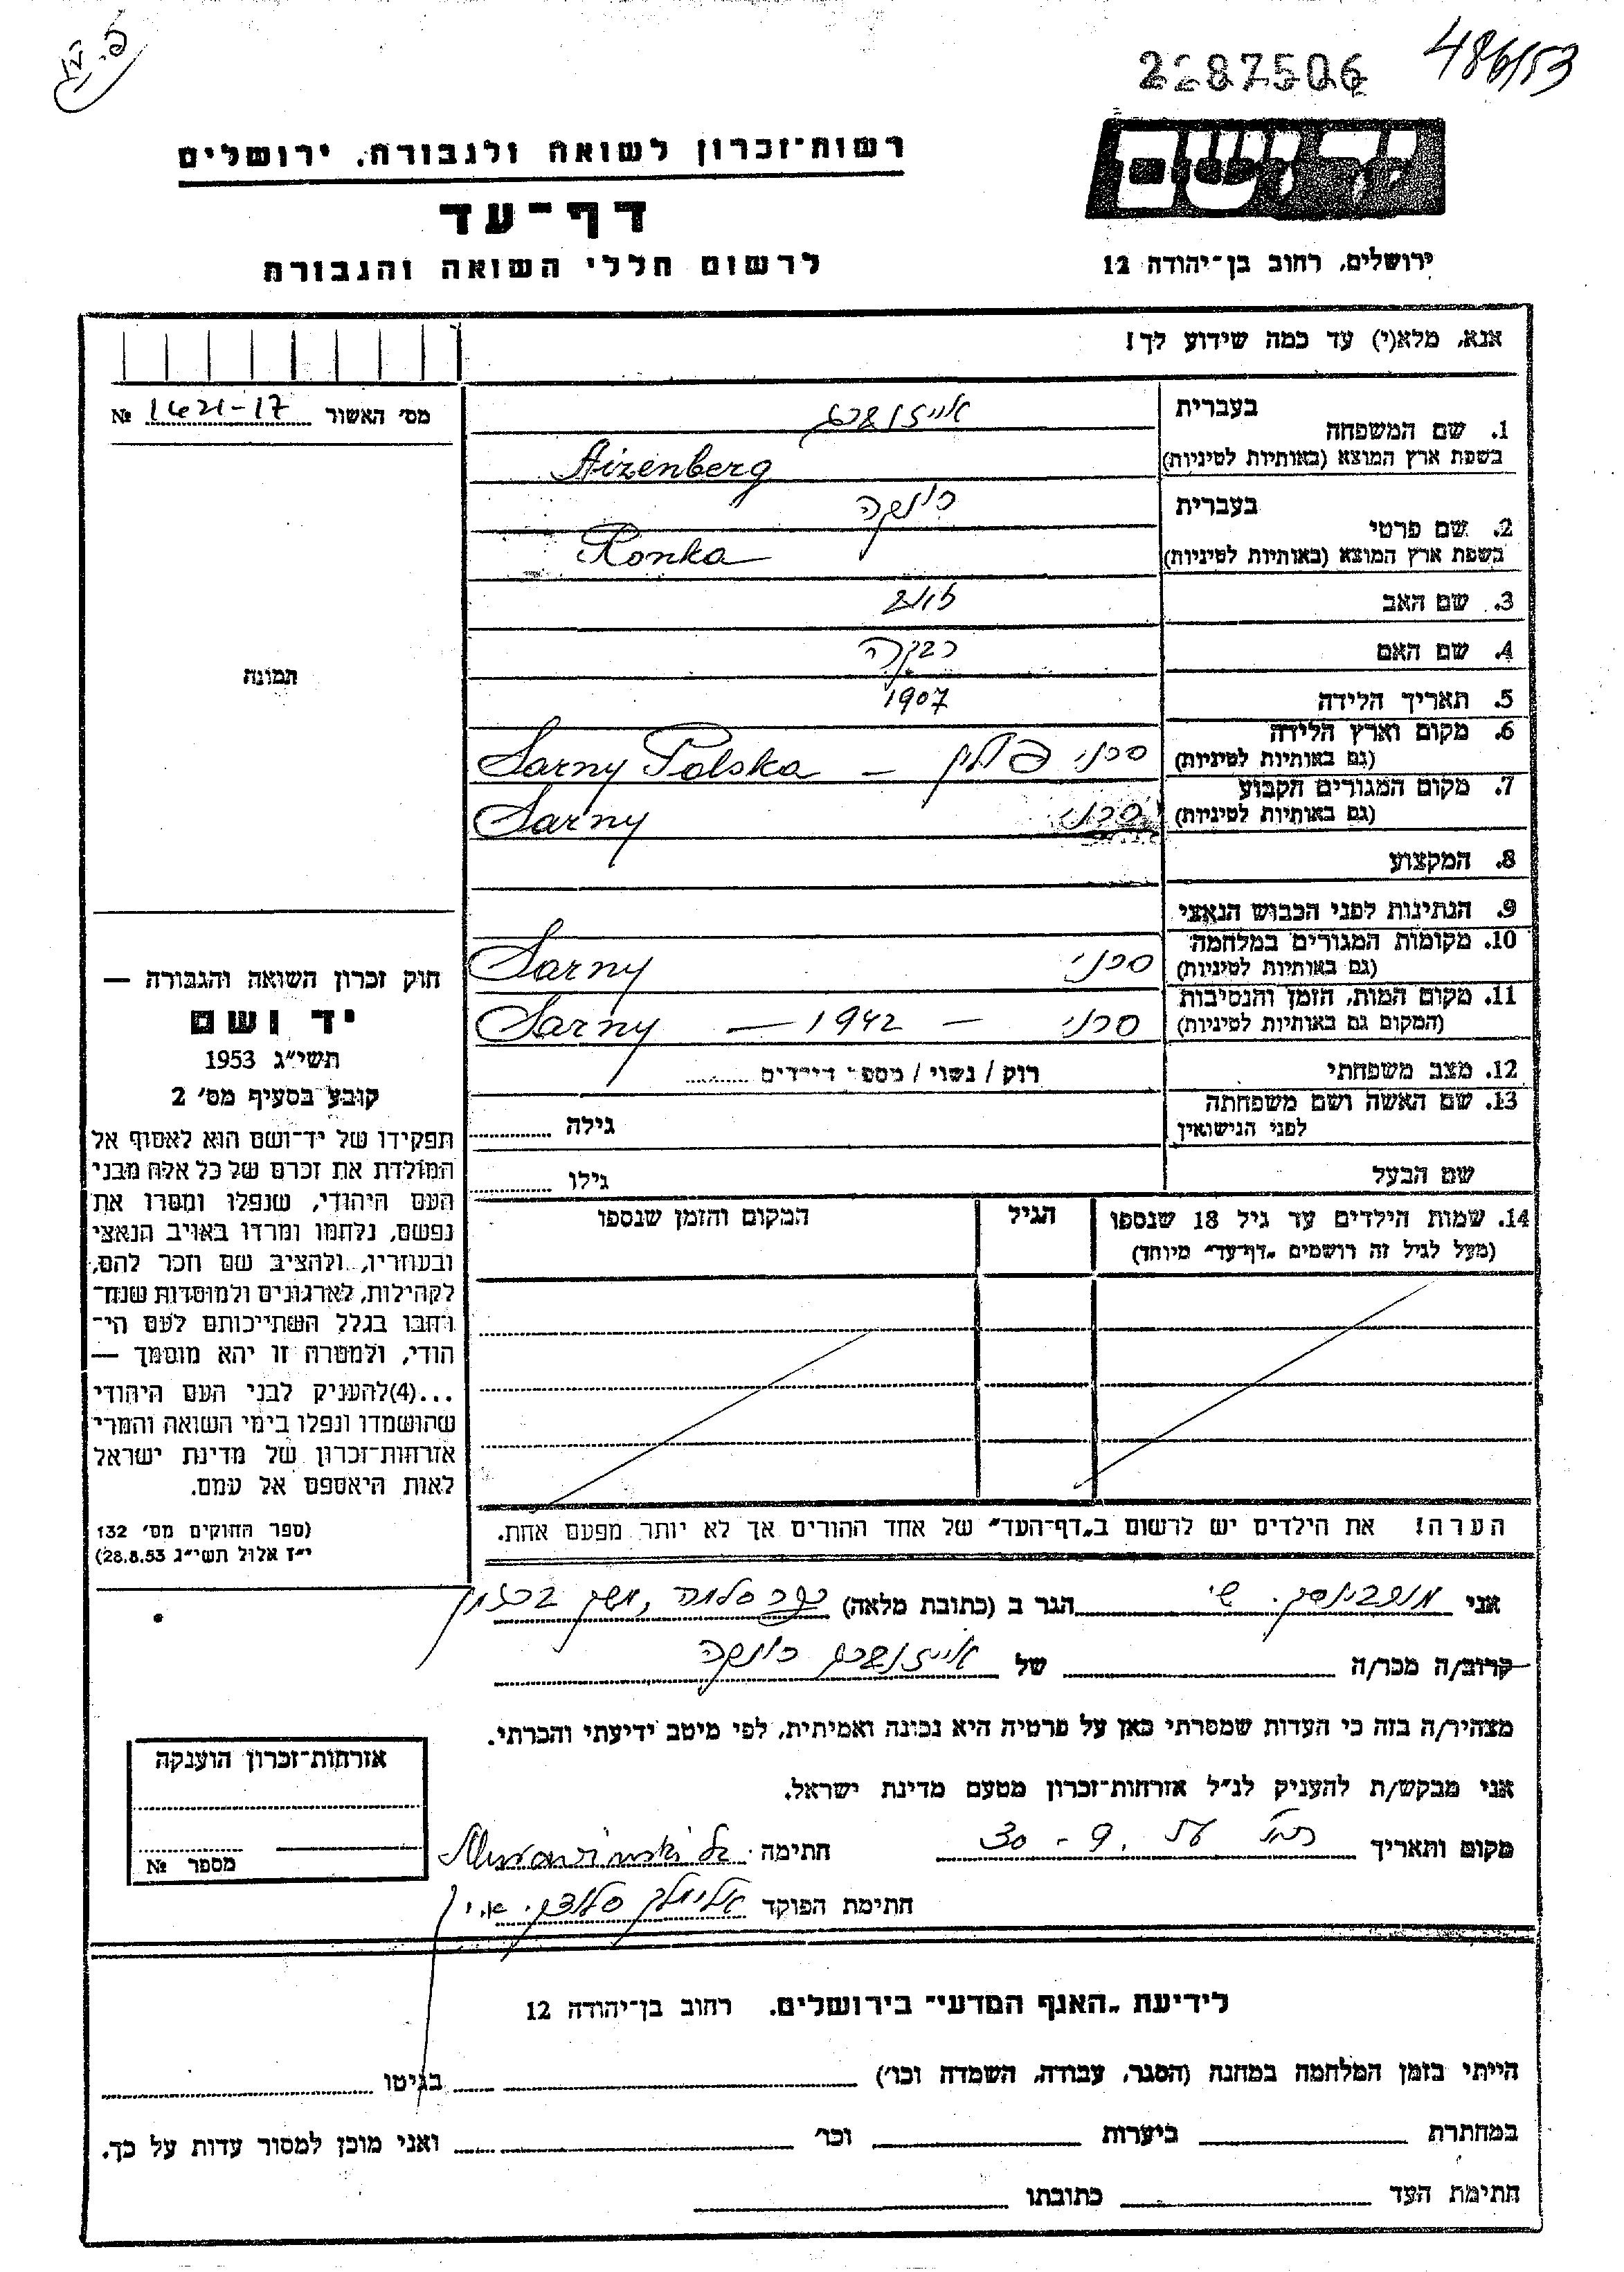 2287506
486/53
יד ושם
רשות־זכרון לשואה ולגבורה, ירושלים
דף־עד
לרשום חללי השואה והגבורה
ירושלים, רחוב בן־יהודה 12
אנא, מלא(י) עד כמה שידוע לך!
מס׳ האשור 1421-17 №
תמונה
1. שם המשפחה
בעברית אייזנברג
בשפת ארץ המוצא (באותיות לטיניות) Aizenberg
2. שם פרטי
בעברית רונקה
בשפת ארץ המוצא (באותיות לטיניות) Ronka
3. שם האב זאב
4. שם האם רבקה
5. תאריך הלידה 1907
6. מקום וארץ הלידה
(גם באותיות לטיניות) סרני פולין – Sarny Polska
7. מקום המגורים הקבוע
(גם באותיות לטיניות) סרני Sarny
8. המקצוע
9. הנתינות לפני הכבוש הנאצי
10. מקומות המגורים במלחמה
(גם באותיות לטיניות) סרני Sarny
11. מקום המות, הזמן והנסיבות
(המקום גם באותיות לטיניות) סרני – 1942 – Sarny
12. מצב משפחתי רוק / נשוי / מספר הילדים
13. שם האשה ושם משפחתה
לפני הנישואין גילה
שם הבעל גילו
14. שמות הילדים עד גיל 18 שנספו
(מעל לגיל זה רושמים „דף־עד״ מיוחד)
הגיל
המקום והזמן שנספו
הערה! את הילדים יש לרשום ב„דף־העד״ של אחד ההורים אך לא יותר מפעם אחת.
חוק זכרון השואה והגבורה —
יד ושם
תשי״ג 1953
קובע בסעיף מס׳ 2
תפקידו של יד־ושם הוא לאסוף אל
המולדת את זכרם של כל אלה מבני
העם היהודי, שנפלו ומסרו את
נפשם, נלחמו ומרדו באויב הנאצי
ובעוזריו, ולהציב שם וזכר להם,
לקהילות, לארגונים ולמוסדות שנח־
רחבו בגלל השתייכותם לעם הי־
הודי, ולמטרה זו יהא מוסמך —
...(4)להעניק לבני העם היהודי
שהושמדו ונפלו בימי השואה והמרי
אזרחות־זכרון של מדינת ישראל
לאות היאספם אל עמם.
(ספר החוקים מס׳ 132
י״ז אלול תשי״ג 28.8.53)
אני הגר ב (כתובת מלאה)
קרוב/ה מכר/ה של אייזנברג רונקה
מצהיר/ה בזה כי העדות שמסרתי כאן על פרטיה היא נכונה ואמיתית, לפי מיטב ידיעתי והכרתי.
אני מבקש/ת להעניק לנ״ל אזרחות־זכרון מטעם מדינת ישראל.
מקום ותאריך 30 - 9. חתימה
חתימת הפוקד
אזרחות־זכרון הוענקה
מספר №
לידיעת „האגף המדעי״ בירושלים. רחוב בן־יהודה 12
הייתי בזמן המלחמה במחנה (הסגר, עבודה, השמדה וכו׳) בגיטו
במחתרת ביערות וכו׳ ואני מוכן למסור עדות על כך.
חתימת העד כתובתו